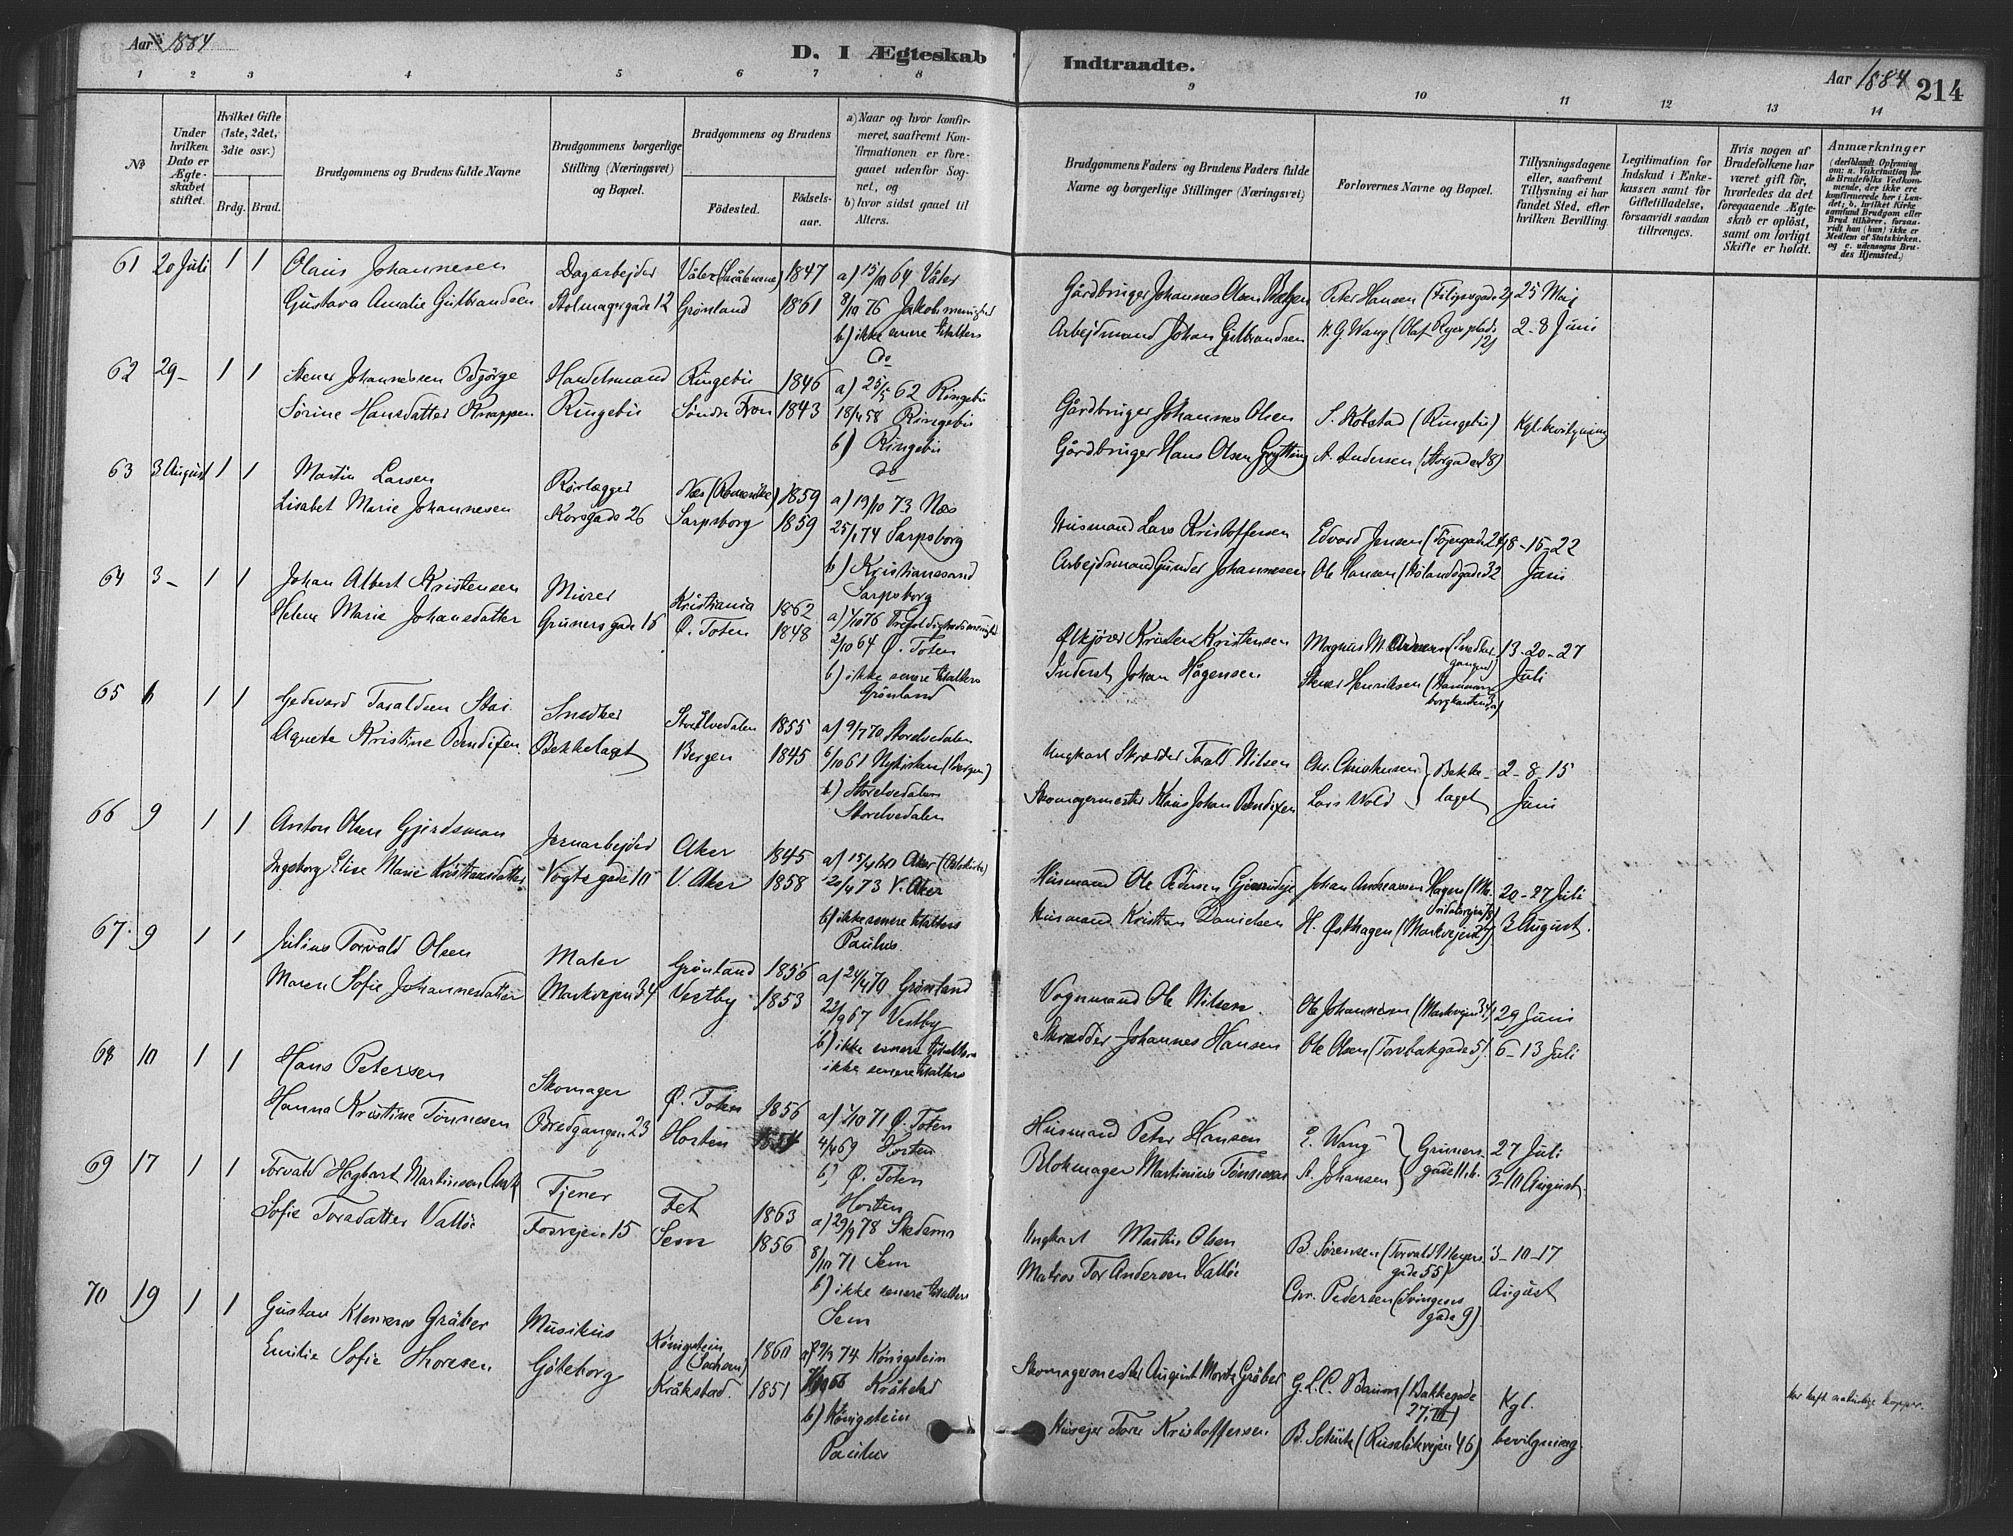 Aar 1884
D. I Ægteskab Indtraadte.
Aar 1884 214
1 2 3 4 5 6 7 8 9 10 11 12 13 14
No
Under hvilken Dato er Ægteskabet stiftet.
Hvilket Gifte (1ste, 2det, 3die osv.)
Brdg. Brud.
Brudgommens og Brudens fulde Navne
Brudgommens borgerlige Stilling (Næringsvei) og Bopæl.
Brudgommens og Brudens
Fødested. Fødselsaar.
a) Naar og hvor konfirmeret, saafremt Konfirmationen er foregaaet udenfor Sognet, og
b) hvor sidst gaaet til Alters.
Brudgommens Faders og Brudens Faders fulde Navne og borgerlige Stillinger (Næringsvei)
Forlovernes Navne og Bopæl.
Tillysningsdagene eller, saafremt Tillysning ei har fundet Sted, efter hvilken Bevilling.
Legitimation for Indskud i Enkekassen samt for Giftetilladelse, forsaavidt saadan tiltrænges.
Hvis nogen af Brudefolkene har været gift før, hvorledes da det foregaaende Ægteskab er opløst, samt om lovligt Skifte er holdt.
Anmærkninger
(deriblandt Oplysning om: a. Vakcination for de Brudefolks Vedkommende, der ikke ere konfirmerede her i Landet; b. hvilket Kirkesamfund Brudgom eller Brud tilhører, forsaavidt han (hun) ikke er Medlem af Statskirken, og c. udensogns Brudes Hjemsted.)
61 20 Juli 1 1 Olaus Johannesen Dagarbejder Våler (Smålenene) 1847 a) 15/10 64 Våler Gårdbruger Johannes Olsen Peter Hansen (Filipsgade 2) 25 Maj
Gustava Amalie Gulbrandsen Stolmagergade 12 Grønland 1861 8/10 76 Jakobs menighed Arbejdsmand Johan Gulbrandsen H. G. Wang (Olaf Ryes plads 12) 2-8 Juni
b) ikke senere til alters
do
62 29 - 1 1 Stener Johannesen Bjørge Handelsmand Ringebu 1846 a) 25/5 62 Ringebu Gårdbruger Johannes Olsen S. Kolstad (Ringebu) Kgl. bevilgning
Sørine Hansdatter Ringebu Søndre Fron 1843 18/4 58 Ringebu Gårdbruger Hans Olsen Grytting A. Andersen (Storgaden 8)
b) Ringebu
do
63 3 August 1 1 Martin Larsen Rørlægger Næs (Romerike) 1859 a) 19/10 73 Næs Husmand Lars Kristoffersen Edvard Jensen (Tøjengade 24) 8-15-22
Lisabet Marie Johannesen Korsgade 26 Sarpsborg 1859 25/1 74 Sarpsborg Arbejdsmand Gunder Johannesen Ole Hansen (Rolandsgade 32 Juni
b) Kristianssand
Sarpsborg
64 3 - 1 1 Johan Albert Kristensen Murer Kristiania 1862 a) 1/10 76 Trefoldighedsmenighed Ølkjører Kristen Kristensen Magnus M. 13-20-27
Helene Marie Johansdatter Gruners gade 16 Ø. Toten 1848 2/10 64 Ø. Toten Inderst Johan Hågensen Stener Henriksen Juli
b) ikke senere til alters
Grønland
65 6 1 1 Gedevard Taraldsen Stai Snedker Storelvedalen 1855 a) 9/7 70 Storelvedalen Ungkarl Skrædder Tarald Nilsen Chr. Christensen Bekke- 2-8-15
Agnete Kristine Bendixen Bekkelaget Bergen 1845 6/10 61 Nykirken (Bergen) Skomagermester Klaus Johan Bendixen Lars Wold laget Juni
b) Storelvedalen
Storelvedalen
66 9 1 1 Anton Olsen Gjerdsman Jernarbejder Aker 1845 a) 15/4 60 Aker Husmand Ole Pedersen Johan Andreassen Hagen 20-27 Juli
Ingeborg Elise Marie Kristiansdatter Vogts gade 10 V. Aker 1858 20/4 73 V. Aker Husmand Kristian Danielsen H. Østhagen (Markvejen) 3 August.
b) ikke senere til alters
Paulus
67 9 1 1 Julius Torvald Olsen Maler Grønland 1856 a) 24/4 70 Grønland Vognmand Ole Nilsen Ole Johannesen (Markvejen 34) 29 Juni
Maren Sofie Johannesdatter Markvejen 34 Vestby 1853 22/9 67 Vestby Skrædder Johannes Hansen Ole Olsen (Torvbakgade 5) 6-13 Juli
b) ikke senere til alters
ikke senere til alters
68 10 1 1 Hans Petersen Skomager Ø. Toten 1856 a) 1/10 71 Ø. Toten Husmand Peter Hansen E. Wang Gruners 27 Juli
Hanna Kristine Tønnesen Bredgangen 23 Horten 1854 4/4 69 Horten Blokmager Martinius Tønnesen A. Johansen gade 11 b. 3-10 August
b) Ø. Toten
Horten
69 17 1 1 Torvald Hagbart Martinsen Tjener Fet 1863 a) 29/9 78 Skedsmo Ungkarl Martin Olsen B. Sørensen (Torvald Meyers gade 55) 3-10-17
Sofie Torsdatter Valløe Fossvejen 15 Sem 1856 8/10 71 Sem Matros Tor Andersen Valløe Chr. Pedersen (Svingens gade 9) August
b) ikke senere til alters
Sem
70 19 1 1 Gustav Klemens Gräber Musikus Königstein (Sachsen) 1860 a) 29/3 74 Königstein Skomagermester August Moritz Gräber G. L. C. Baum (Bakkegade 27, III) Kgl.
Emilie Sofie Thoresen Göteborg Kråkstad. 1851 66 Kråkstad Husejer Tore Kristoffersen B. Schütz (Ruseløkvejen 46) bevilgning.
b) Königstein
Paulus
har haft naturlige kopper.